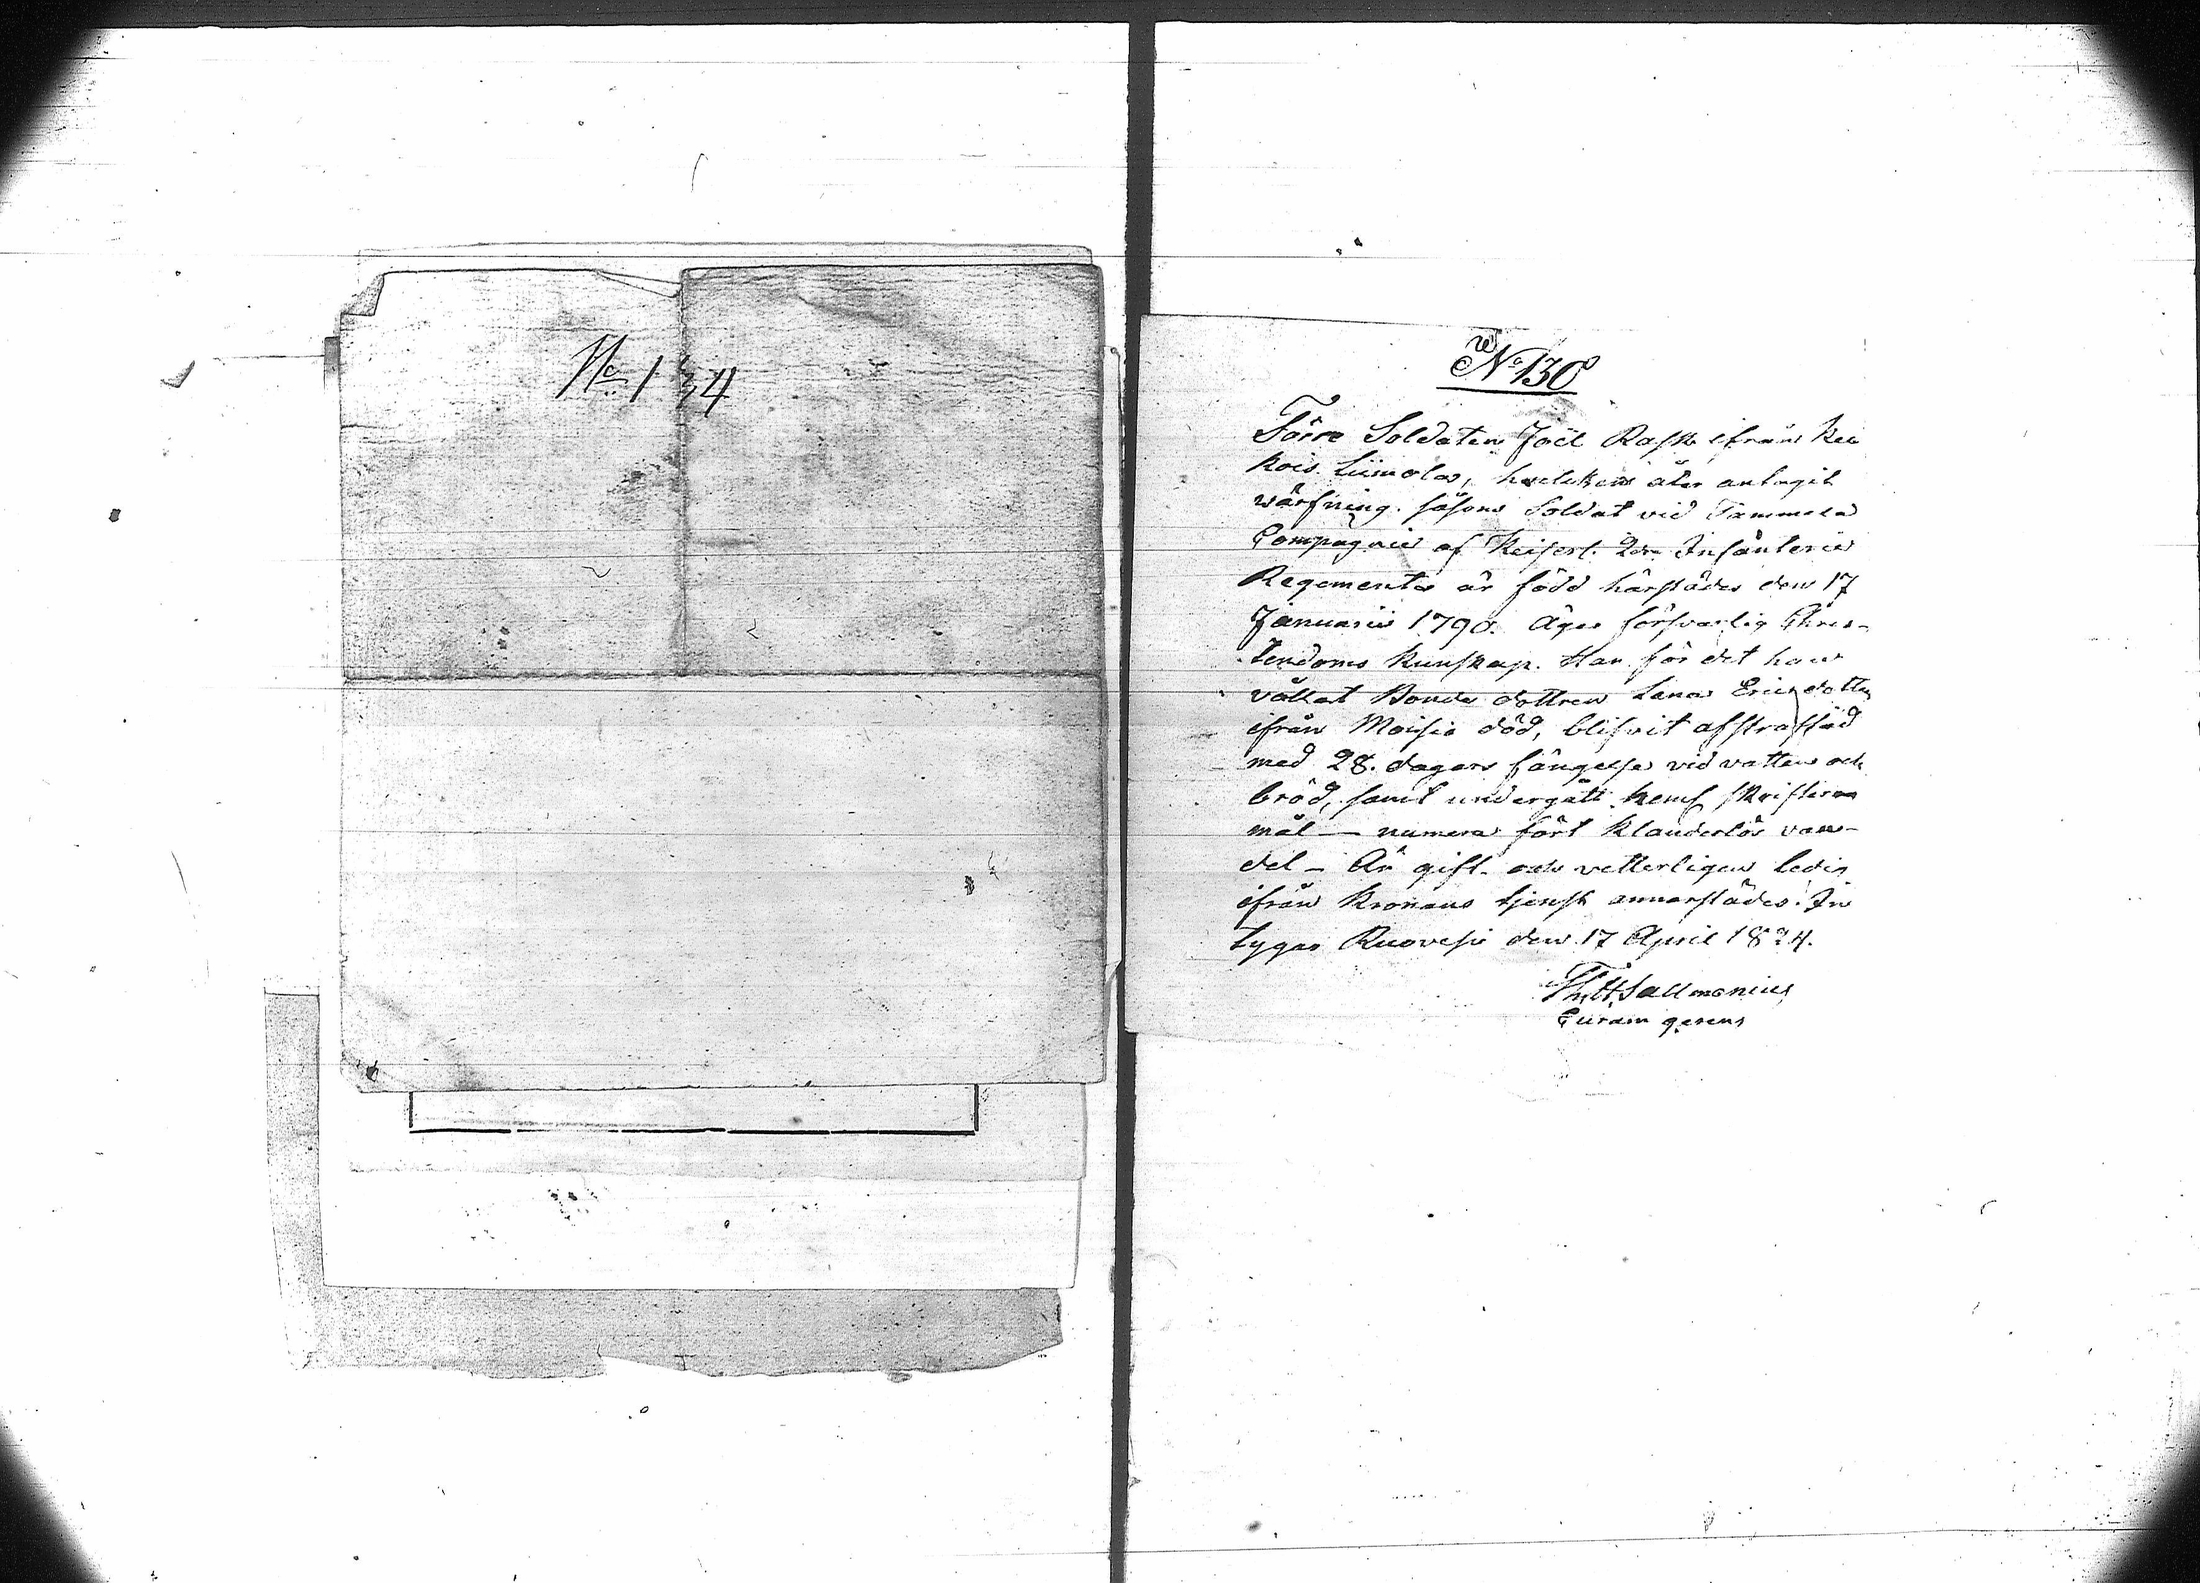 No 134
No 130
Förre Soldaten Joël Rask ifrån Keu
kois Liimola, hvilken åter antagit
wärfning såsom Soldat vid Tammela
Compagnie af Keiserl. 2dra Infanterie
Regemente är född härstädes den 17
Januarii 1790. Äger försvarlig Chris-
tendoms kunskap. Har för det han
vållat Bonde dottren Lena Ericsdotter
ifrån Moisio död, blifvit afstraffad
med 28. dagars fängelse vid vatten och
bröd, samt undergått heml skrifter
mål — numera fört klanderlös van-
del — Är gift och vetterligen ledig
ifrån Kronans tjenst annorstädes. In
tygar Ruovesi den 17 April 1824.
Sallmenius
Curam gerens